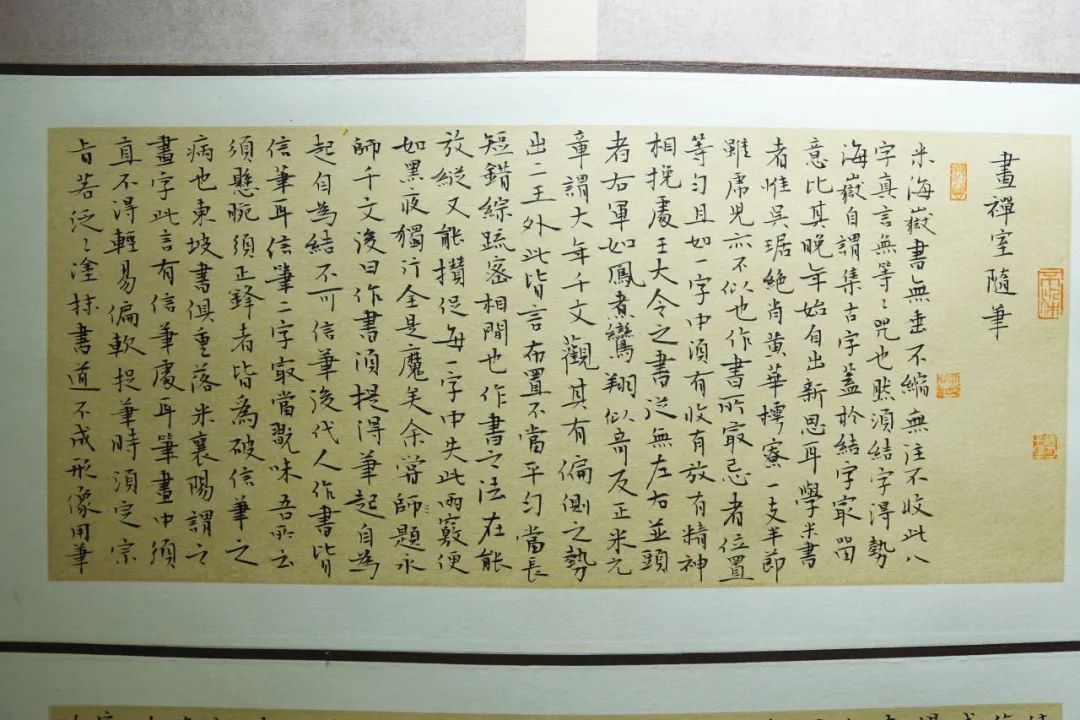 畫禪室隨筆
米海嶽書無垂不縮無注不收此八
字真言無等〻咒也然須結字得勢
海嶽自謂集古字蓋於結字最留
意比其晚年始自出新思耳學米書
者惟吳琚絕肖黃華樗寮一支半節
雖虎兒亦不似也作書所最忌者位置
等勻且如一字中須有收有放有精神
相挽處王大令之書從無左右並頭
者右軍如鳳翥鸞翔似奇反正米元
章謂大年千文觀其有偏側之勢
出二王外此皆言布置不當平勻當長
短錯綜疏密相間也作書之法在能
放縱又能攢促每一字中失此兩竅便
如黑夜獨行全是魔矣余嘗師題永
師千文後曰作書須提得筆起自為
起自為結不可信筆後代人作書皆
信筆耳信筆二字最當翫味吾所云
須懸腕須正鋒者皆為破信筆之
病也東坡書俱重落米襄陽謂之
畫字此言有信筆處耳筆畫中須
直不得輕易偏軟捉筆時須定宗
旨若泛〻塗抹書道不成形像用筆